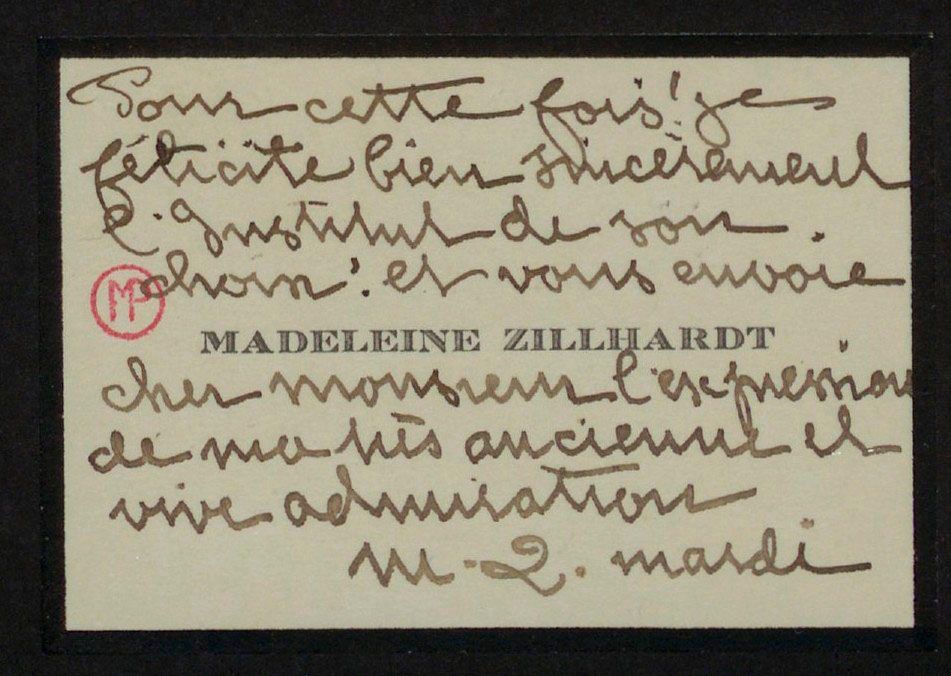 Pour cette fois! je
félicite bien sincèrement
l'Institut de son
choix! et vous envoie
MP
MADELEINE ZILLHARDT
cher monsieur l'expression
de ma très ancienne et
vive admiration
M. Z. mardi